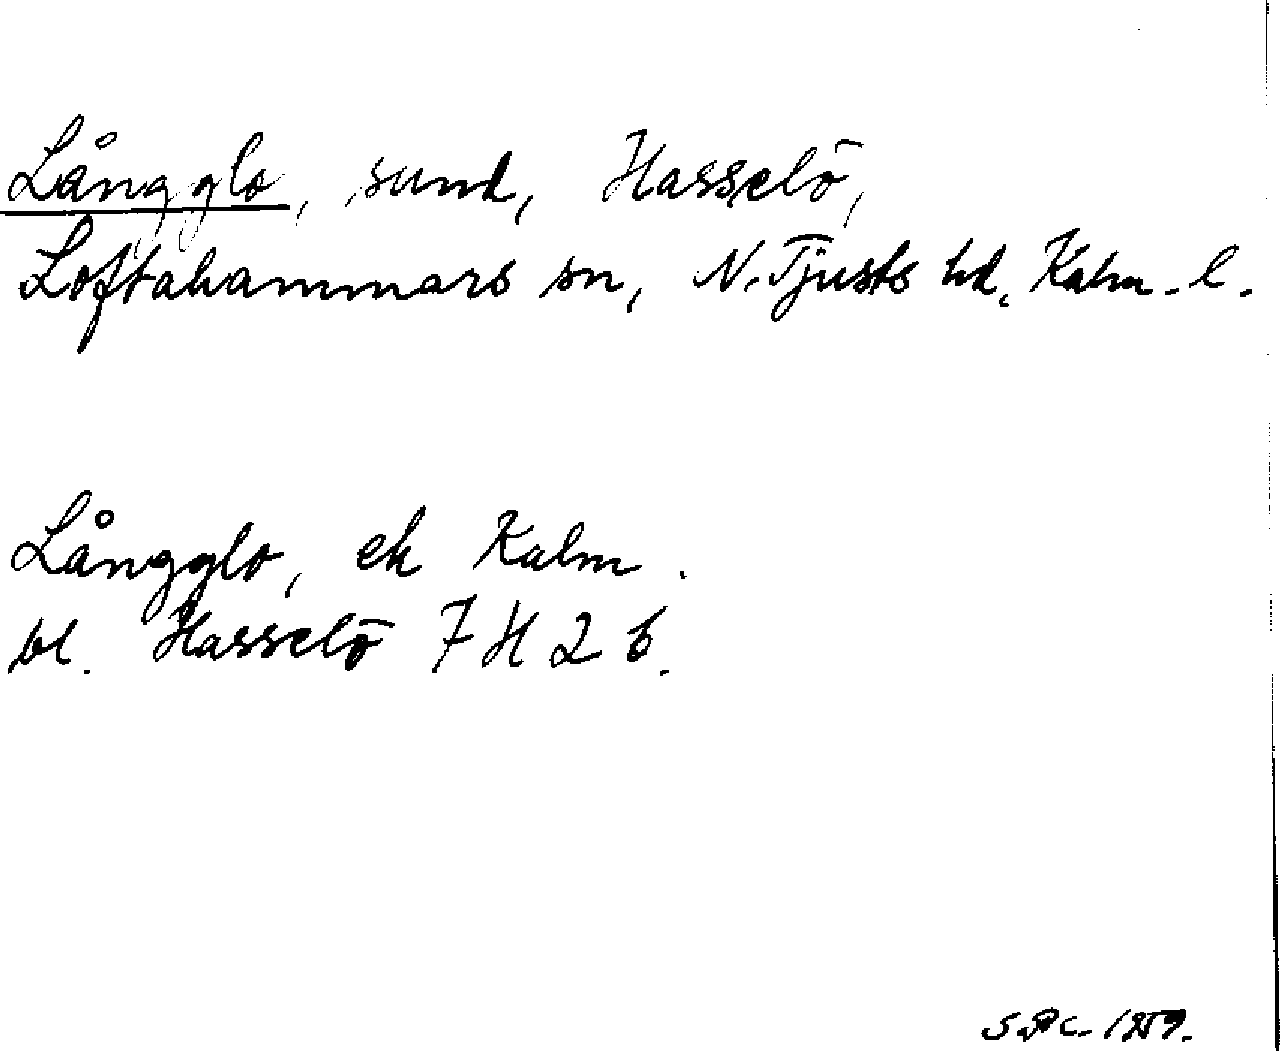 Långglo, sund, Hasselö,
Loftahammars sn, N. Tjusts hd, Kalm. l.
Långglo, ek Kalm.
bl. Hasselö 7 H 2 b.
1959.